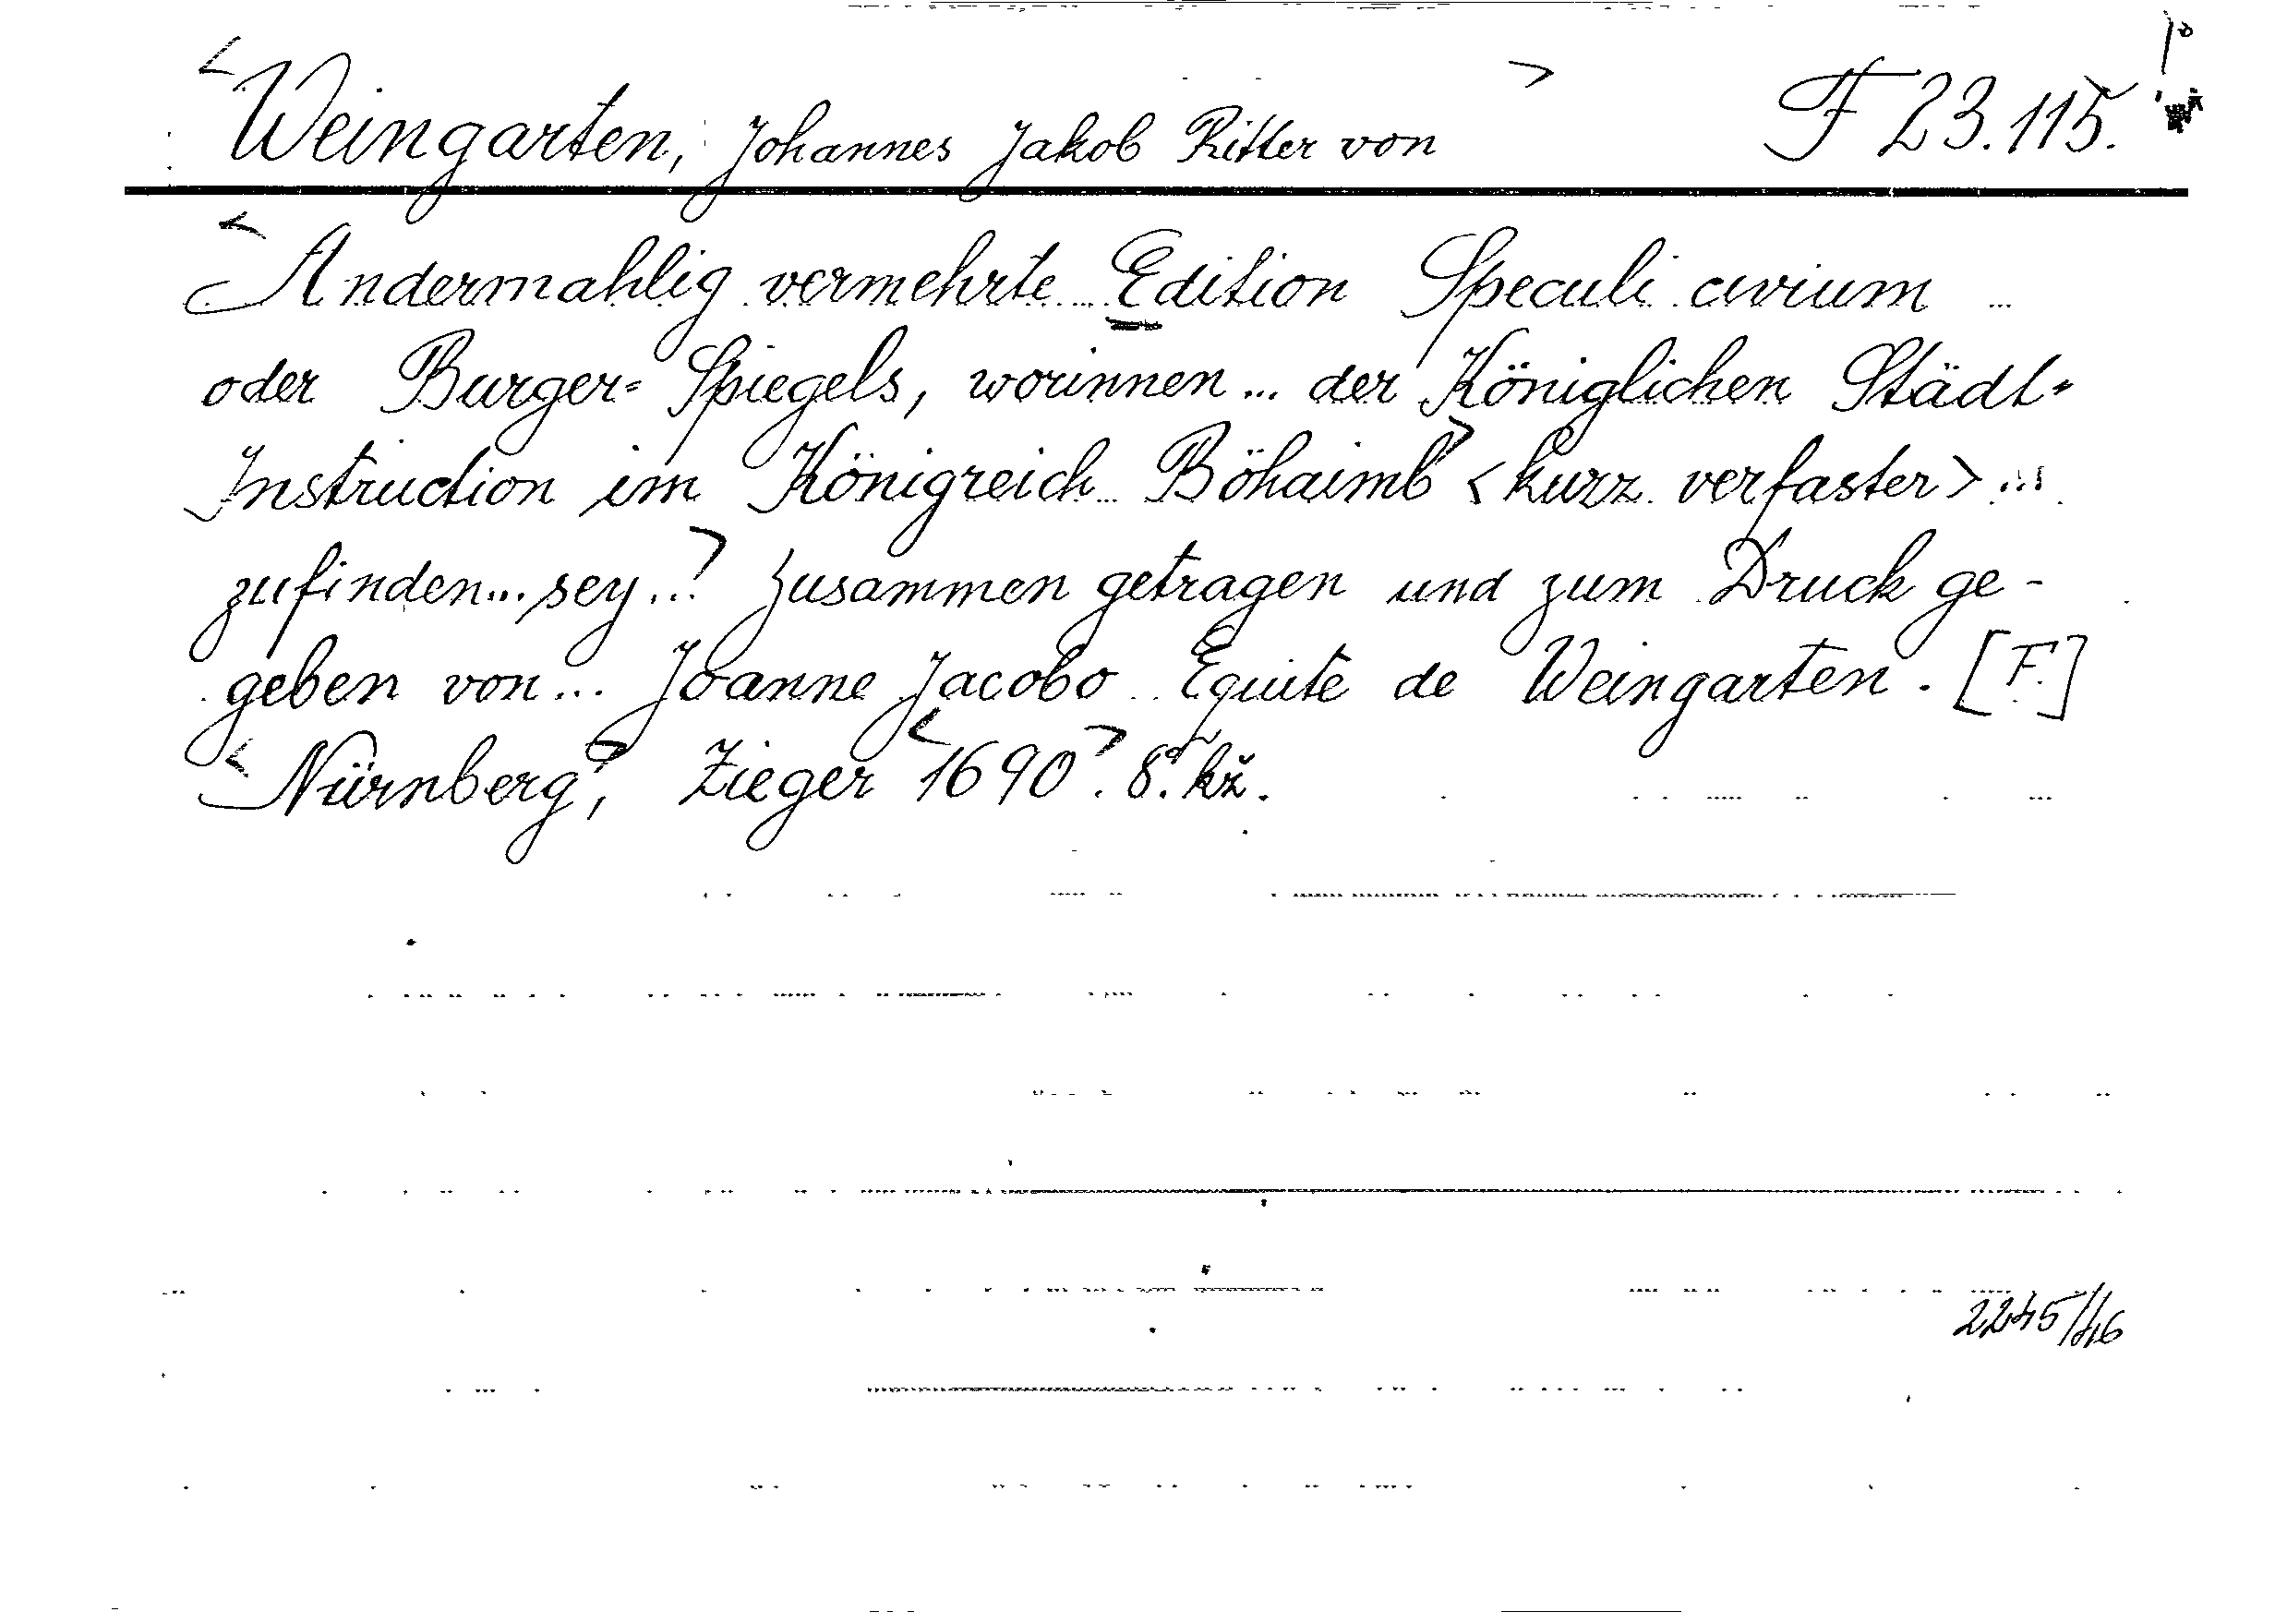 <Weingarten, Johannes Jakob Ritter von> F 23.115.
<Andermahlig vermehrte... Edition Speculi civium ...
oder Burger= Spiegels, worinnen ... der Königlichen Städt=
Instruction im Königreich Böhaimb> <kurz verfaster> ...
zufinden... sey...> Zusammen getragen und zum Druck ge-
geben von... Joanne Jacobo Equite de Weingarten. [F.]
<Nürnberg>, Zieger <1690>. 8°. kž.
2245/46